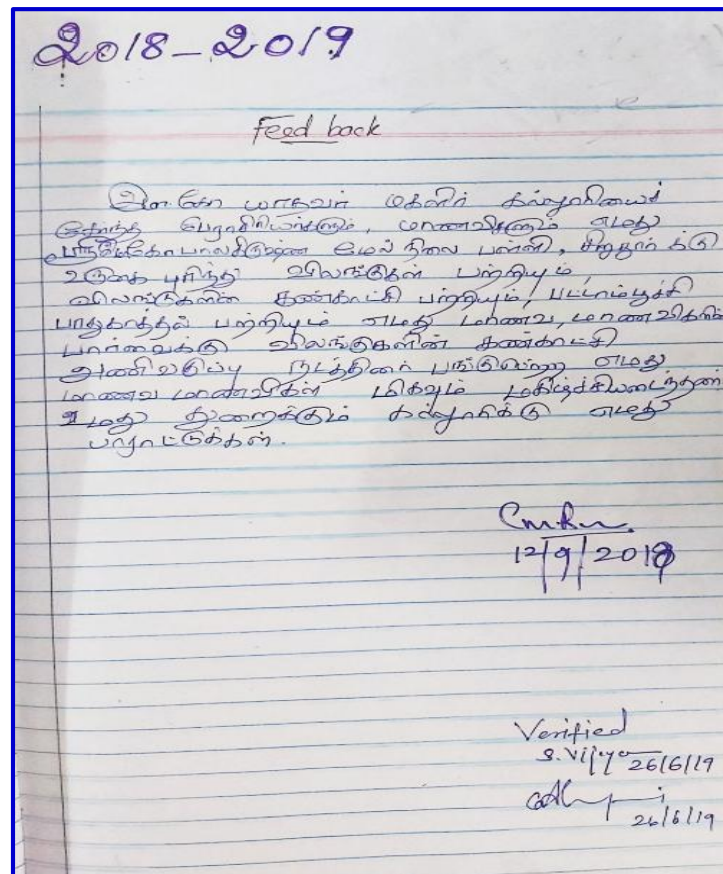 2018-2019
Feed back
இ.எம்.கோ யாதவர் மகளிர் கல்லூரியைச்
சேர்ந்த பேராசிரியர்களும், மாணவிகளும் எமது
கோபாலகிருஷ்ண மேல்நிலை பள்ளி, க்கு
வருகை புரிந்து விலங்குகள் பற்றியும்,
விலங்குகளின் கண்காட்சி பற்றியும், பட்டாம்பூச்சி
பாதுகாத்தல் பற்றியும் எமது மாணவ, மாணவிகளின்
பார்வைக்கு விலங்குகளின் கண்காட்சி
அணிவகுப்பு நடத்தினர் பங்குபெற்ற எமது
மாணவ மாணவிகள் மிகவும் மகிழ்ச்சியடைந்தனர்
உமது துறைக்கும் கல்லூரிக்கு எமது
பாராட்டுக்கள்.
12/9/2018
Verified
S. Vijaya 26/6/19
26/6/19